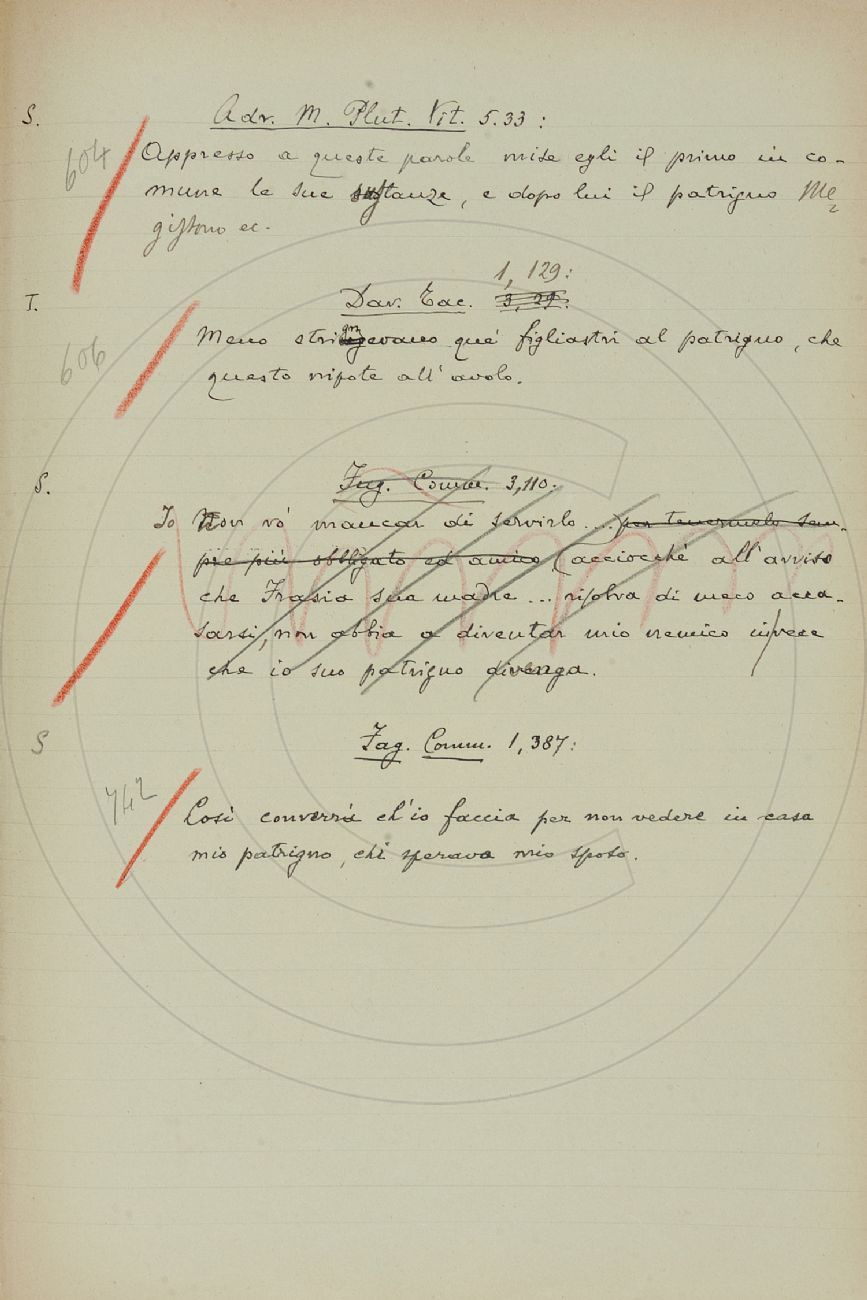 S. Adr. M. Plut. Vit. 5.33 :
604 Appresso a queste parole mise egli il primo in co-
mune le sue sustanze, e dopo lui il patrigno Me
gistono ec.
1, 129:
T. Dav. Tac. 3, 29:
606 Meno stringevano que' figliastri al patrigno, che
questo nipote all' avolo.
S. Fag. Comm. 3,110.
Io Non vo' mancar di servirlo.... per tenermelo sem-
pre più obbligato ed amico (acciocchè all' avviso
che Frasia sua madre ... risolva di meco acca-
sarsi, non abbia a diventar mio nemico invece
che io suo patrigno divenga.
S Fag. Comm. 1, 387:
742
Così converrà ch'io faccia per non vedere in casa
mio patrigno, chi sperava mio sposo.